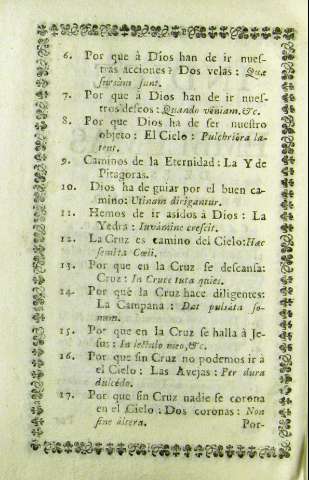 6. Por que à Dios han de ir nues-
tras acciones? Dos velas: Quæ
sursùm sunt.
7. Por que à Dios han de ir nues-
tros deseos: Quando vèniam, &c.
8. Por que Dios ha de ser nuestro
objeto: El Cielo: Pulchriòra la-
tent.
9. Caminos de la Eternidad: La Y de
Pitagoras.
10. Dios ha de guiar por el buen ca-
mino: Utinam dirigantur.
11. Hemos de ir asidos à Dios: La
Yedra: Iuvámine crescit.
12. La Cruz es camino del Cielo: Hac
semita Cœli.
13. Por que en la Cruz se descansa:
Cruz: In Cruce tuta quies.
14. Por què la Cruz hace diligentes:
La Campana: Dat pulsáta so-
num.
15. Por que en la Cruz se halla à Je-
sus: In lectulo meo, &c.
16. Por que sin Cruz no podemos ir à
el Cielo: Las Avejas: Per dura
dulcédo.
17. Por que sin Cruz nadie se corona
en el Cielo: Dos coronas: Non
sine áltera.
Por-